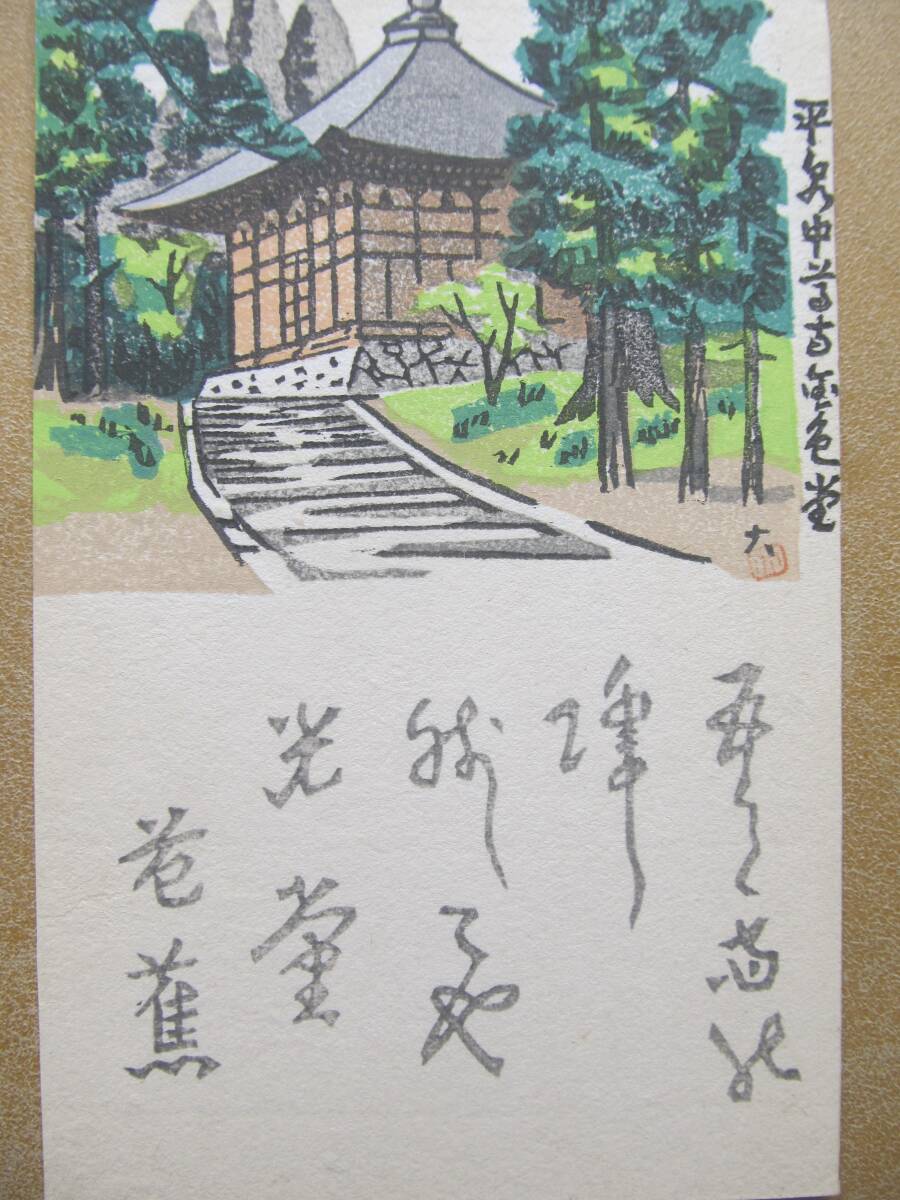 平泉中尊寺金色堂
五月雨能
降
残してや
光堂
芭蕉